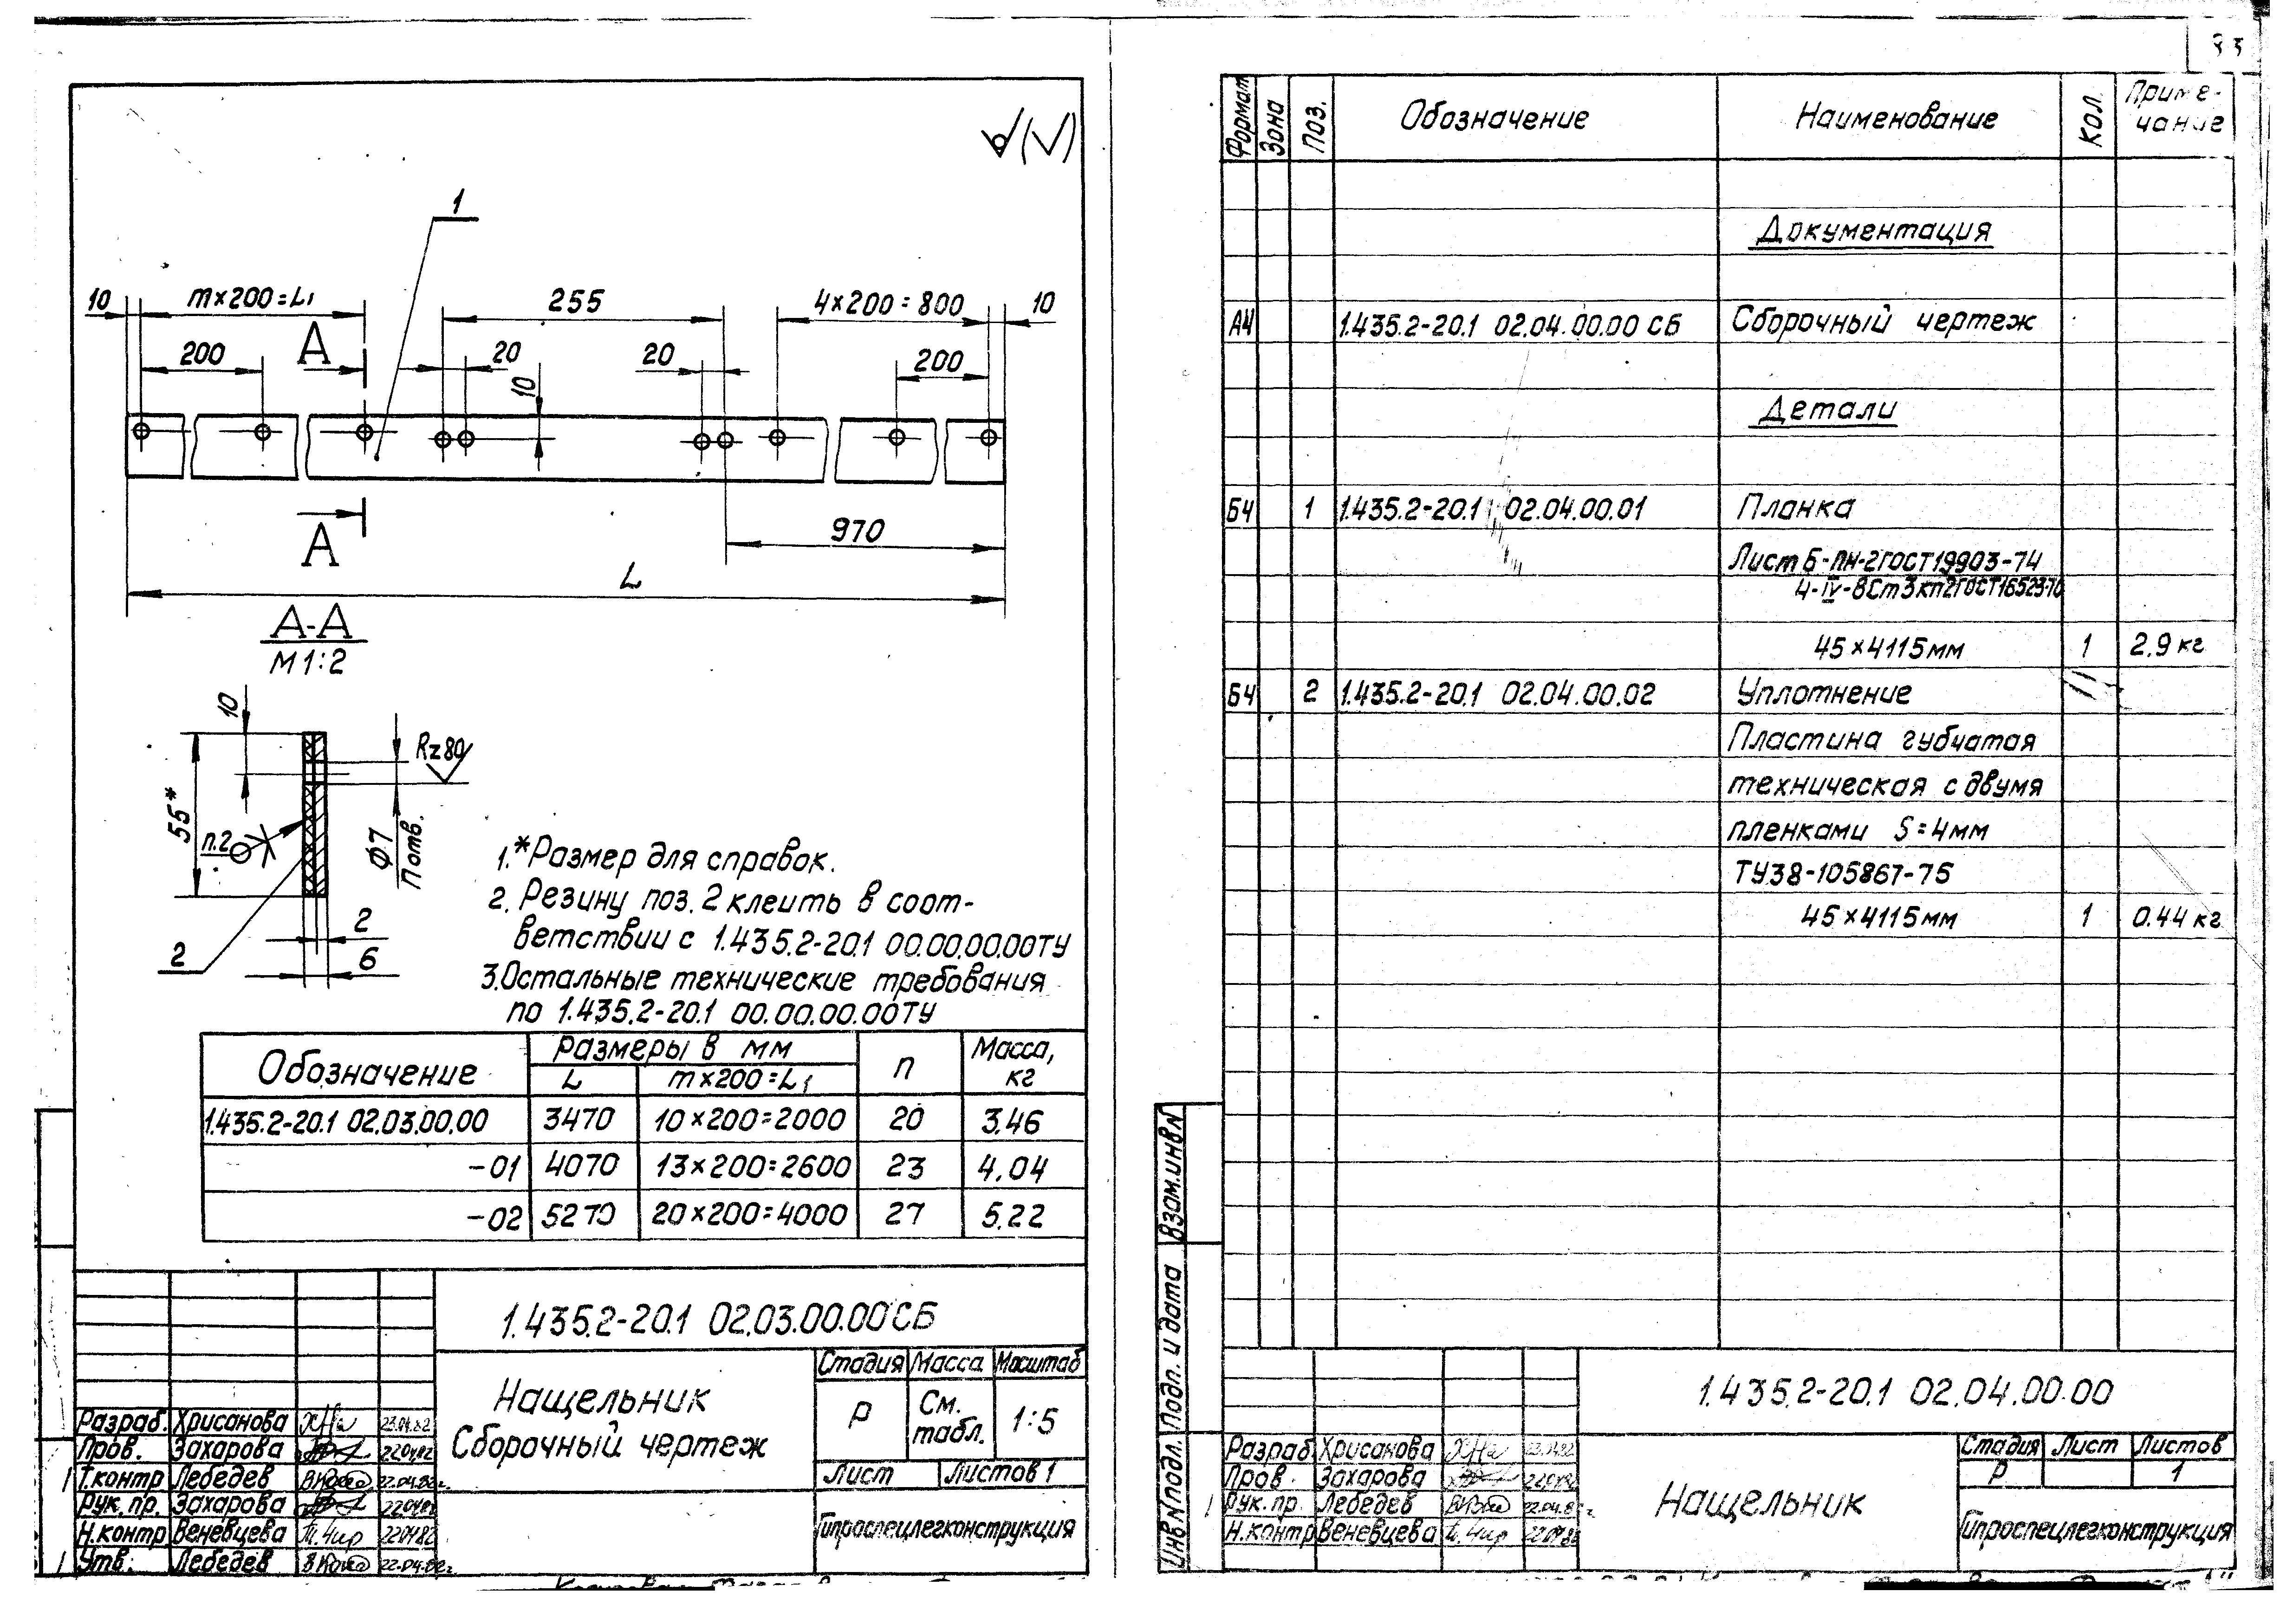 33
1
10
m×200=L₁
255
4×200=800
10
200
А
20
20
200
10
970
А
L
А-А
М1:2
10
Rz80
55*
п.2
Ф7
п отв.
2
2
6
1.*Размер для справок.
2. Резину поз. 2 клеить в соот-
ветствии с 1.435.2-20.1 00.00.00.00ТУ
3.Остальные технические требования
по 1.435.2-20.1 00.00.00.00ТУ
Обозначение
Размеры в мм
L
m×200=L₁
n
Масса,
кг
1.435.2-20.1 02.03.00.00 3470 10×200=2000 20 3.46
-01 4070 13×200=2600 23 4.04
-02 5270 20×200=4000 27 5.22
1.435.2-20.1 02.03.00.00СБ
Нащельник
Сборочный чертеж
Стадия Масса Масштаб
Р См. табл. 1:5
Лист Листов 1
Гипроспецлегконструкция
Разраб. Хрисанова 23.04.82
Пров. Захарова 22.04.82
Т.контр Лебедев 22.04.82г.
Рук. пр. Захарова 22.04.82
Н.контр Веневцева 22.04.82
Утв. Лебедев 22.04.82г.
Формат Зона Поз. Обозначение Наименование Кол. Приме-
чание
Документация
А4 1.435.2-20.1 02.04.00.00 СБ Сборочный чертеж
Детали
Б4 1 1.435.2-20.1 02.04.00.01 Планка
Лист Б-ПН-2ГОСТ19903-74
4-IV-ВСт3кп2ГОСТ16523-70
45×4115мм 1 2.9 кг
Б4 2 1.435.2-20.1 02.04.00.02 Уплотнение
Пластина губчатая
техническая с двумя
пленками S=4мм
ТУ38-105867-75
45×4115мм 1 0.44 кг
Взам.инв№
Подп. и дата
Инв№подл.
1.435.2-20.1 02.04.00.00
Нащельник
Стадия Лист Листов
Р 1
Гипроспецлегконструкция
Разраб. Хрисанова
Пров. Захарова
Рук. пр. Лебедев
Н.контр Веневцева